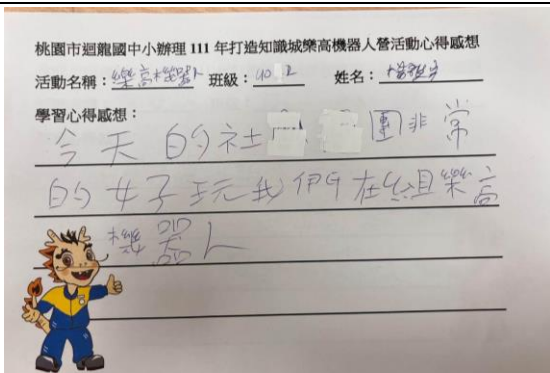 桃園市迴龍國中小辦理 111 年打造知識城樂高機器人營活動心得感想
活動名稱：樂高機器人 班級：姓名：
學習心得感想：
今天的社團非常
的好玩我們在組樂高
機器人